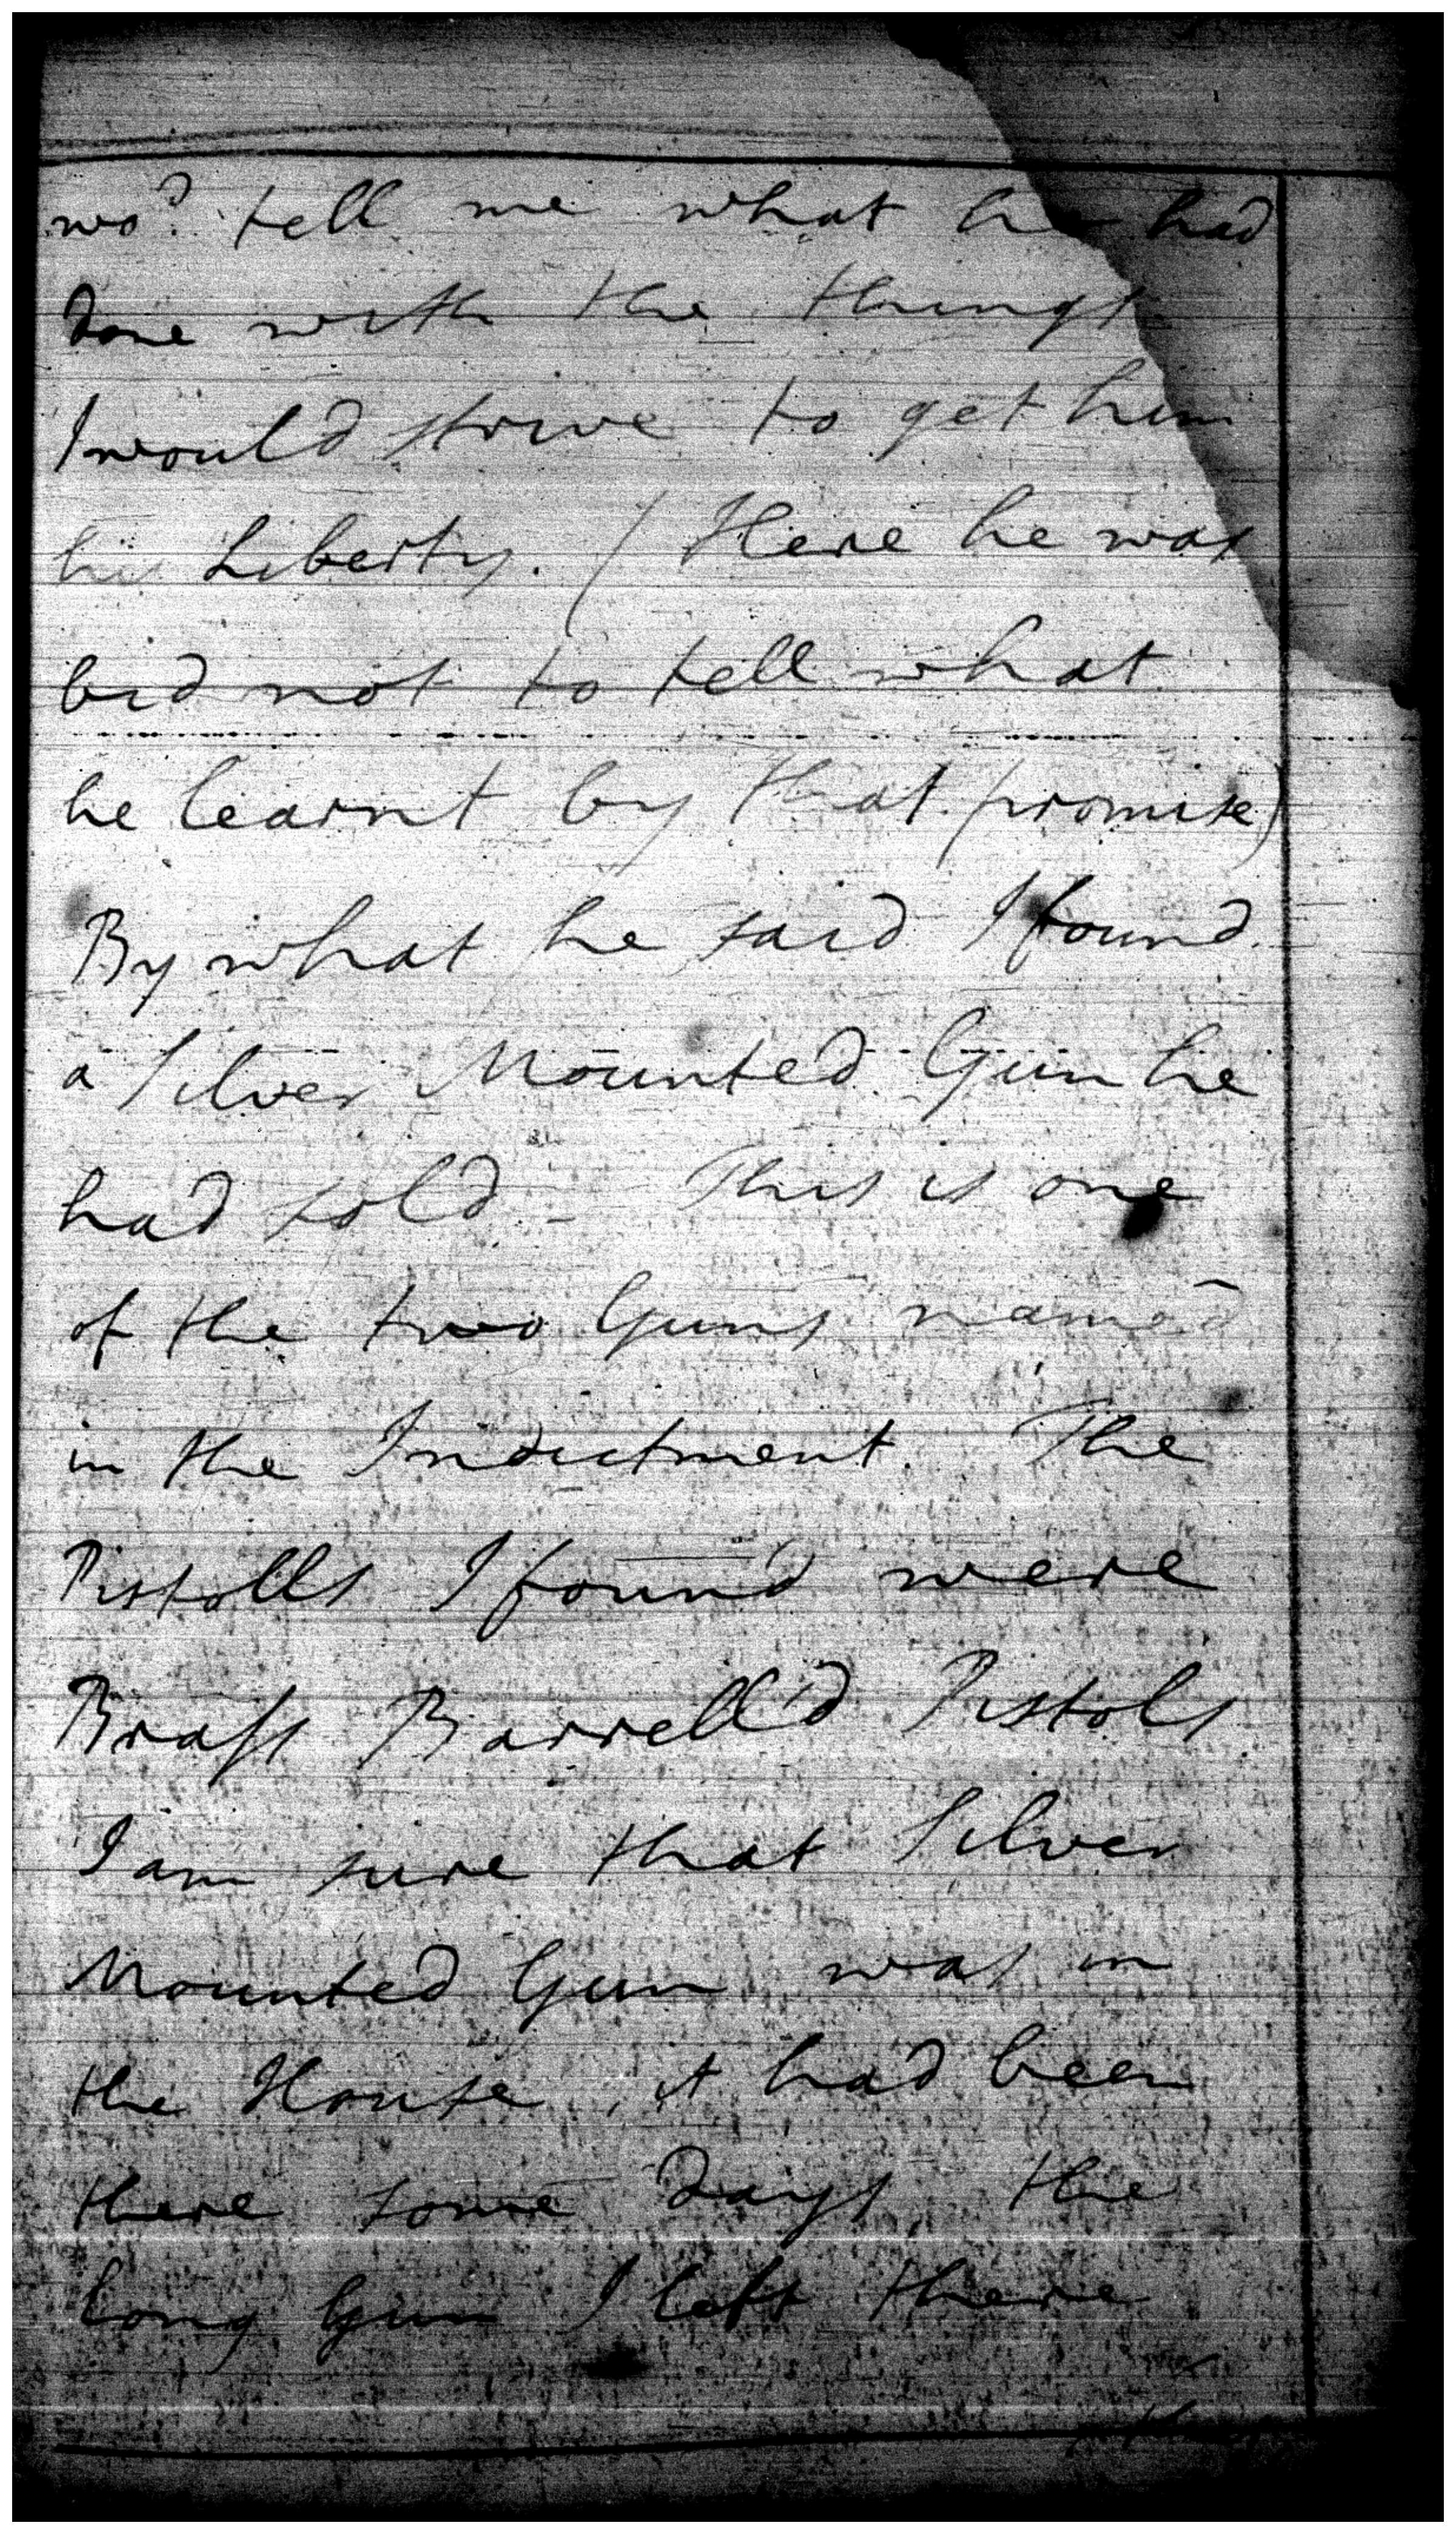 wo.d tell me what he had
done with the things
I would strive to get him
his Liberty. (Here he was
bid not to tell what
he learnt by that promise)
By what he said I found
a Silver Mounted Gun he
had sold - This is one
of the two Guns named
in the Indictment. The
Pistolls I found were
Brass Barrell'd Pistols
I am sure that Silver
Mounted Gun was in
the House, it had been
there some days, the
Long Gun I left there